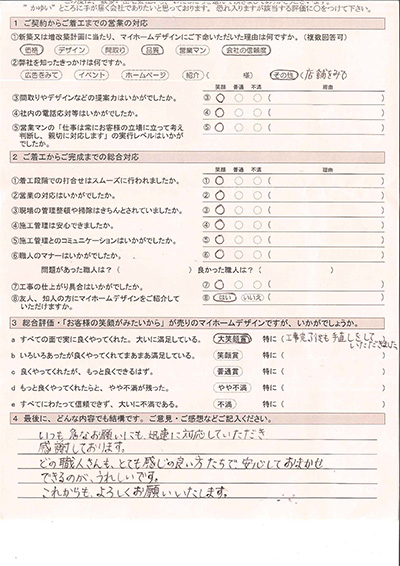 "かゆい"ところに手が届く会社でありたいと思っております。恐れ入りますが該当する評価に○をつけて下さい。
1 ご契約からご着工までの営業の対応
①新築又は増改築計画に当たり、マイホームデザインにご下命いただいた理由は何ですか。(複数回答可)
価格 デザイン 間取り 品質 営業マン 会社の信頼度
②弊社を知ったきっかけは何ですか。
広告をみて イベント ホームページ 紹介( 様) その他(店舗をみて
笑顔 普通 不満 理由
③間取りやデザインなどの提案力はいかがでしたか。 ③ ( )
④社内の電話応対等はいかがでしたか。 ④ ( )
⑤営業マンの「仕事は常にお客様の立場に立って考え ⑤ ( )
判断し、親切に対応します」の実行レベルはいかが
でしたか。
2 ご着工からご完成までの総合対応
笑顔 普通 不満 理由
①着工段階での打合せはスムーズに行われましたか。 ① ( )
②営業の対応はいかがでしたか。 ② ( )
③現場の管理整頓や掃除はきちんとされていましたか。 ③ ( )
④施工管理は安心できましたか。 ④ ( )
⑤施工管理とのコミュニケーションはいかがでしたか。 ⑤ ( )
⑥職人のマナーはいかがでしたか。 ⑥ ( )
問題があった職人は?( ) 良かった職人は?( )
⑦工事の仕上がり具合はいかがでしたか。 ⑦ ( )
⑧友人、知人の方にマイホームデザインをご紹介して ⑧ はい いいえ ( )
いただけますか。
3 総合評価・「お客様の笑顔がみたいから」が売りのマイホームデザインですが、いかがでしょうか。
a すべての面で実に良くやってくれた。大いに満足している。 大笑顔賞 特に(工事完了後も手直しをして
いただきました
b いろいろあったが良くやってくれてまあまあ満足している。 笑顔賞 特に( )
c 良くやってくれたが、もっと良くできるはず。 普通賞 特に( )
d もっと良くやってくれたらと、やや不満が残った。 やや不満 特に( )
e すべてにわたって信頼できず、大いに不満である。 不満 特に( )
4 最後に、どんな内容でも結構です。ご意見・ご感想などご記入ください。
いつも急なお願いにも迅速に対応していただき
感謝しております。
どの職人さんも、とても感じの良い方たちで安心しておまかせ
できるのが、うれしいです。
これからも、よろしくお願いいたします。